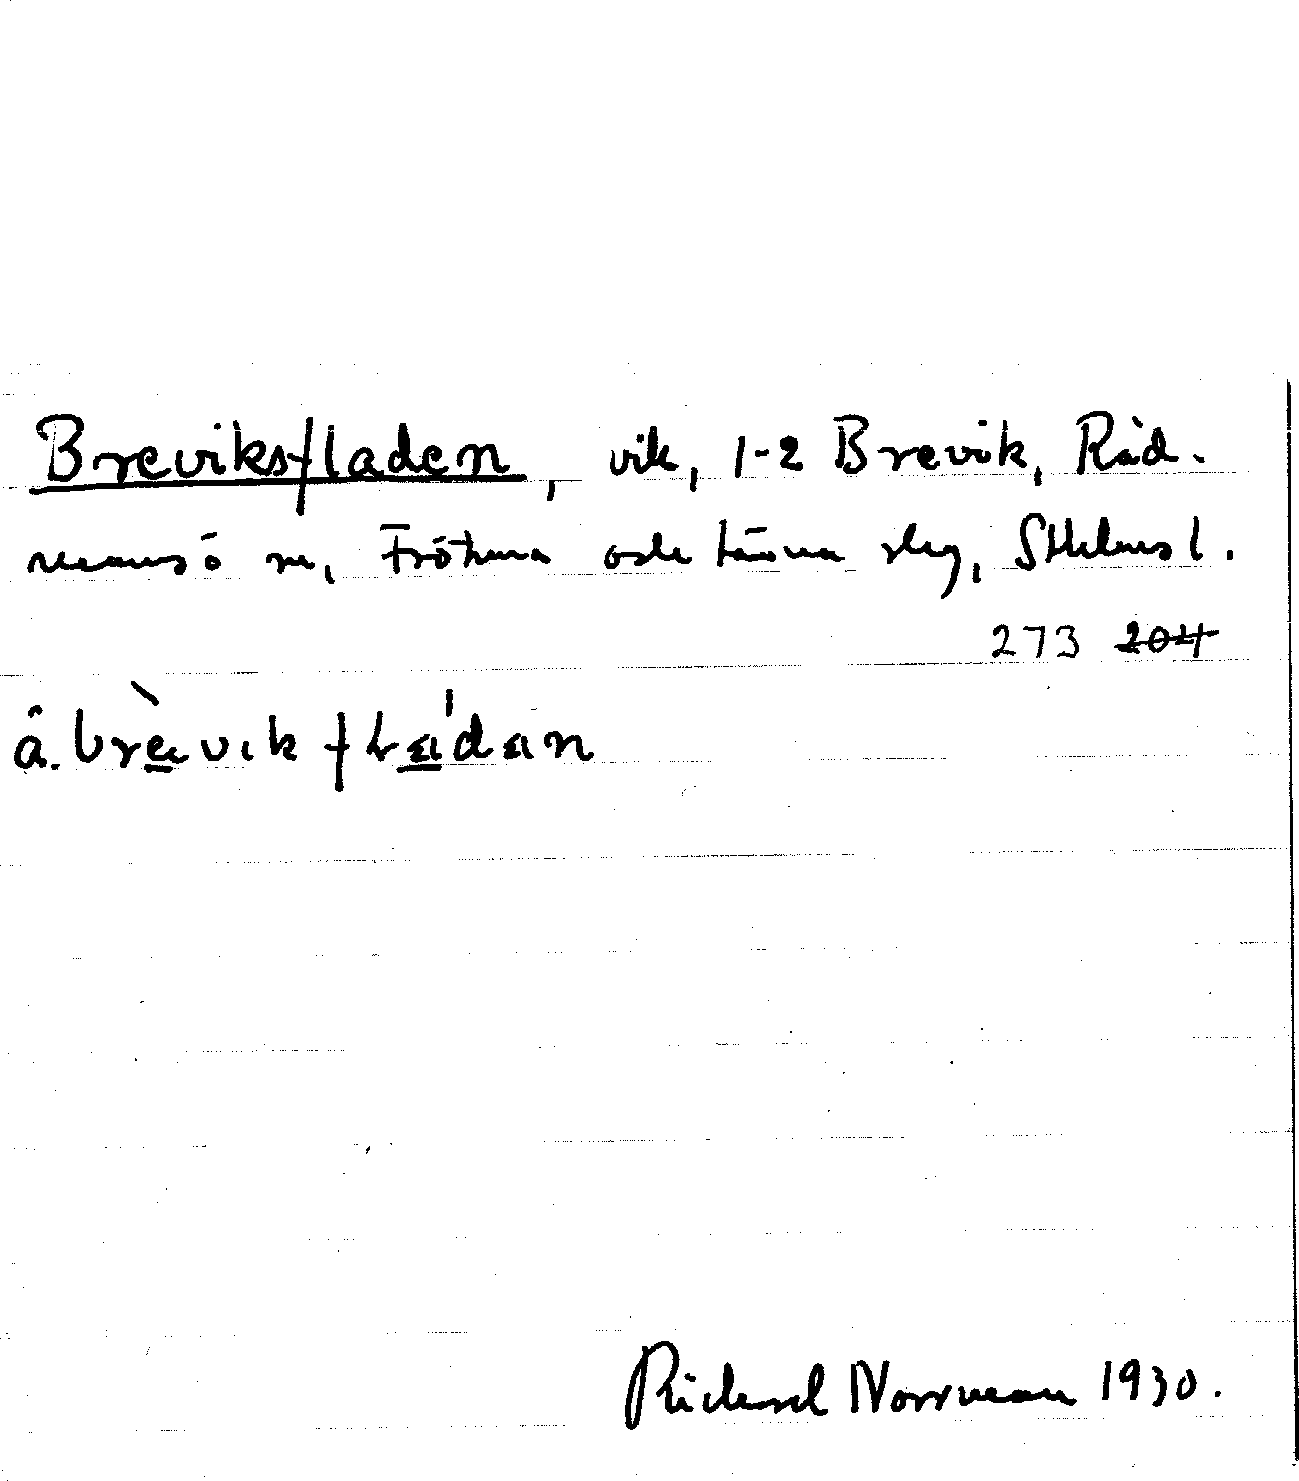 Breviksfladen, vik, 1-2 Brevik, Råd-
mansö sn, Frötuna och Länna slg, Sthlms l.
273 204
å. brèvik fládan
Richard Norrman 1930.